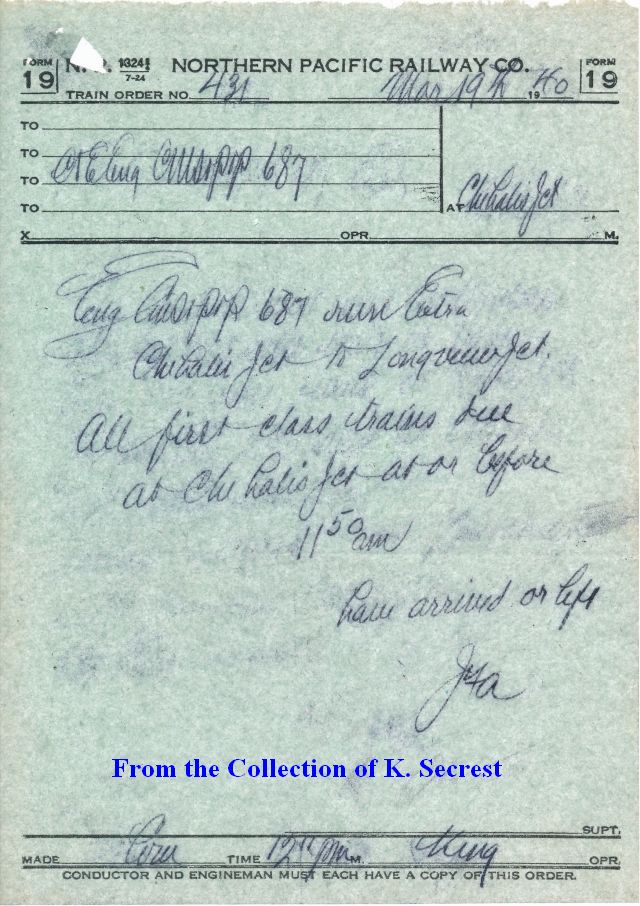 FORM 19 N. P. 1324½ 7-24 NORTHERN PACIFIC RAILWAY CO. FORM 19
TRAIN ORDER NO. 431 Mar 19th 1940
TO
TO
TO C&E Eng CMStP&P 687
TO AT Chehalis Jct
X OPR. M.
Eng CMStP&P 687 run Extra
Chehalis Jct to Longview Jct.
All first class trains due
at Chehalis Jct at or before
11 50 am
have arrived or left
JFA
From the Collection of K. Secrest
SUPT.
MADE Com TIME 12 11 pm M. King OPR.
CONDUCTOR AND ENGINEMAN MUST EACH HAVE A COPY OF THIS ORDER.